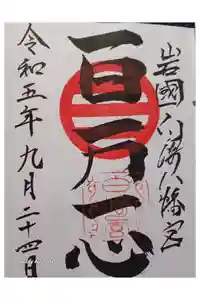 岩國白崎八幡宮
百万一心
令和五年九月二十四日